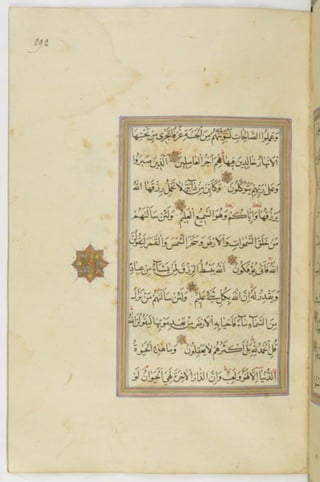 292
وَعَمِلُوا الصَّالِحَاتِ لَنُبَوِّئَنَّهُمْ مِنَ الْجَنَّةِ غُرَفًا تَجْرِي مِنْ تَحْتِهَا
الْاَنْهَارُ خَالِدِينَ فِيهَا نِعْمَ اَجْرُ الْعَامِلِينَ الَّذِينَ صَبَرُوا
وَعَلَى رَبِّهِمْ يَتَوَكَّلُونَ وَكَاَيِّنْ مِنْ دَابَّةٍ لَا تَحْمِلُ رِزْقَهَا اللَّهُ
يَرْزُقُهَا وَاِيَّاكُمْ وَهُوَ السَّمِيعُ الْعَلِيمُ وَلَئِنْ سَاَلْتَهُمْ
مَنْ خَلَقَ السَّمٰوَاتِ وَالْاَرْضَ وَسَخَّرَ الشَّمْسَ وَالْقَمَرَ لَيَقُولُنَّ
اللَّهُ فَاَنَّى يُؤْفَكُونَ اللَّهُ يَبْسُطُ الرِّزْقَ لِمَنْ يَشَاءُ مِنْ عِبَادِهِ
وَيَقْدِرُ لَهُ اِنَّ اللَّهَ بِكُلِّ شَيْءٍ عَلِيمٌ وَلَئِنْ سَاَلْتَهُمْ مَنْ نَزَّلَ
مِنَ السَّمَاءِ مَاءً فَاَحْيَا بِهِ الْاَرْضَ مِنْ بَعْدِ مَوْتِهَا لَيَقُولُنَّ اللَّهُ
قُلِ الْحَمْدُ لِلَّهِ بَلْ اَكْثَرُهُمْ لَا يَعْقِلُونَ وَمَا هٰذِهِ الْحَيٰوةُ
الدُّنْيَا اِلَّا لَهْوٌ وَلَعِبٌ وَاِنَّ الدَّارَ الْاٰخِرَةَ لَهِيَ الْحَيَوَانُ لَوْ